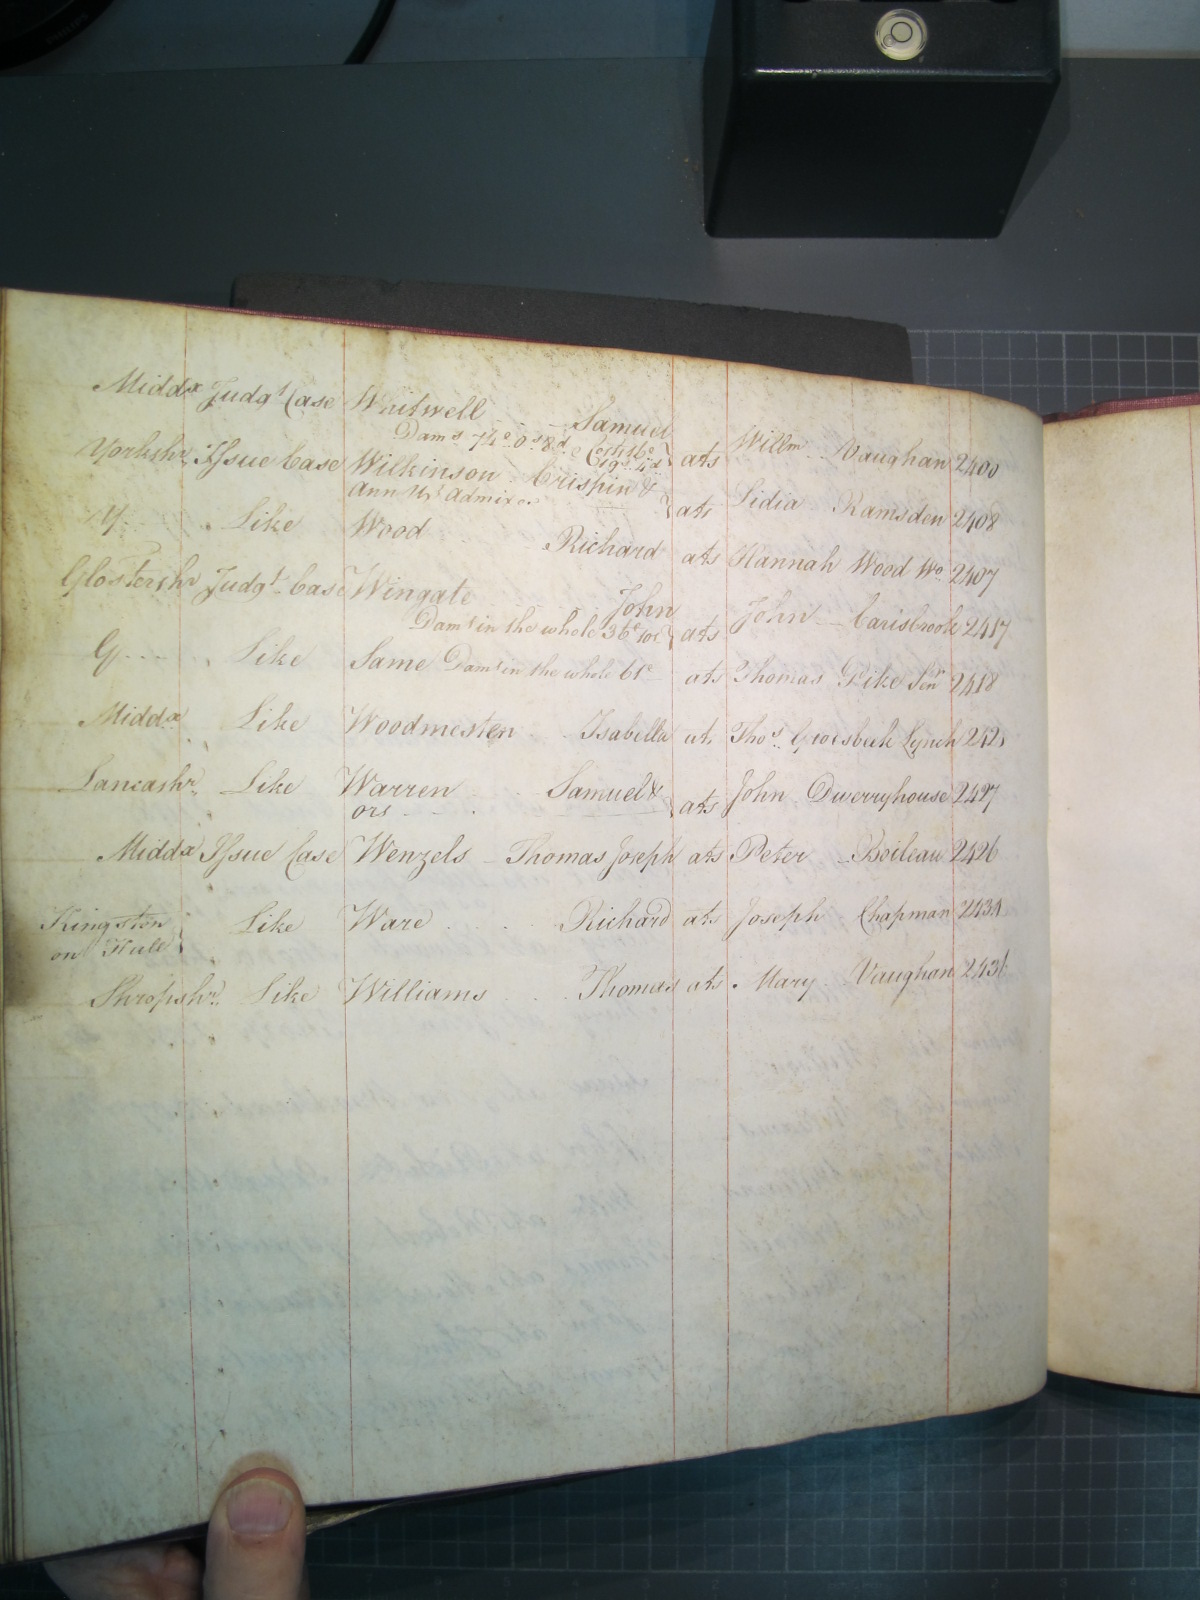 Middx Judgt Case Whitwell Samuel
Dams 74£ 0s 8d
ats Willm Vaughan 2400
Yorkshr Issue Case Wilkinson Crispin &
Ann Ux Admix
ats Lidia Ramsden 2408
Y Like Wood Richard ats Hannah Wood Wo. 2407
Glostershr Judgt Case Wingate John
Dams in the whole 36£ 10s ats John Carisbrook 2417
G Like Same Dams in the whole 61£ ats Thomas Pike Senr 2418
Middx Like Woodmesten Isabella ats Thos. Groesbeek Lynch
Lancashr Like Warren Samuel &
ors ats John Dwerryhouse 2427
Middx Issue Case Wenzels Thomas Joseph ats Peter Boileau 2426
Kingston
on Hull Like Ware Richard ats Joseph Chapman 2434
Shropshr. Like Williams Thomas ats Mary Vaughan